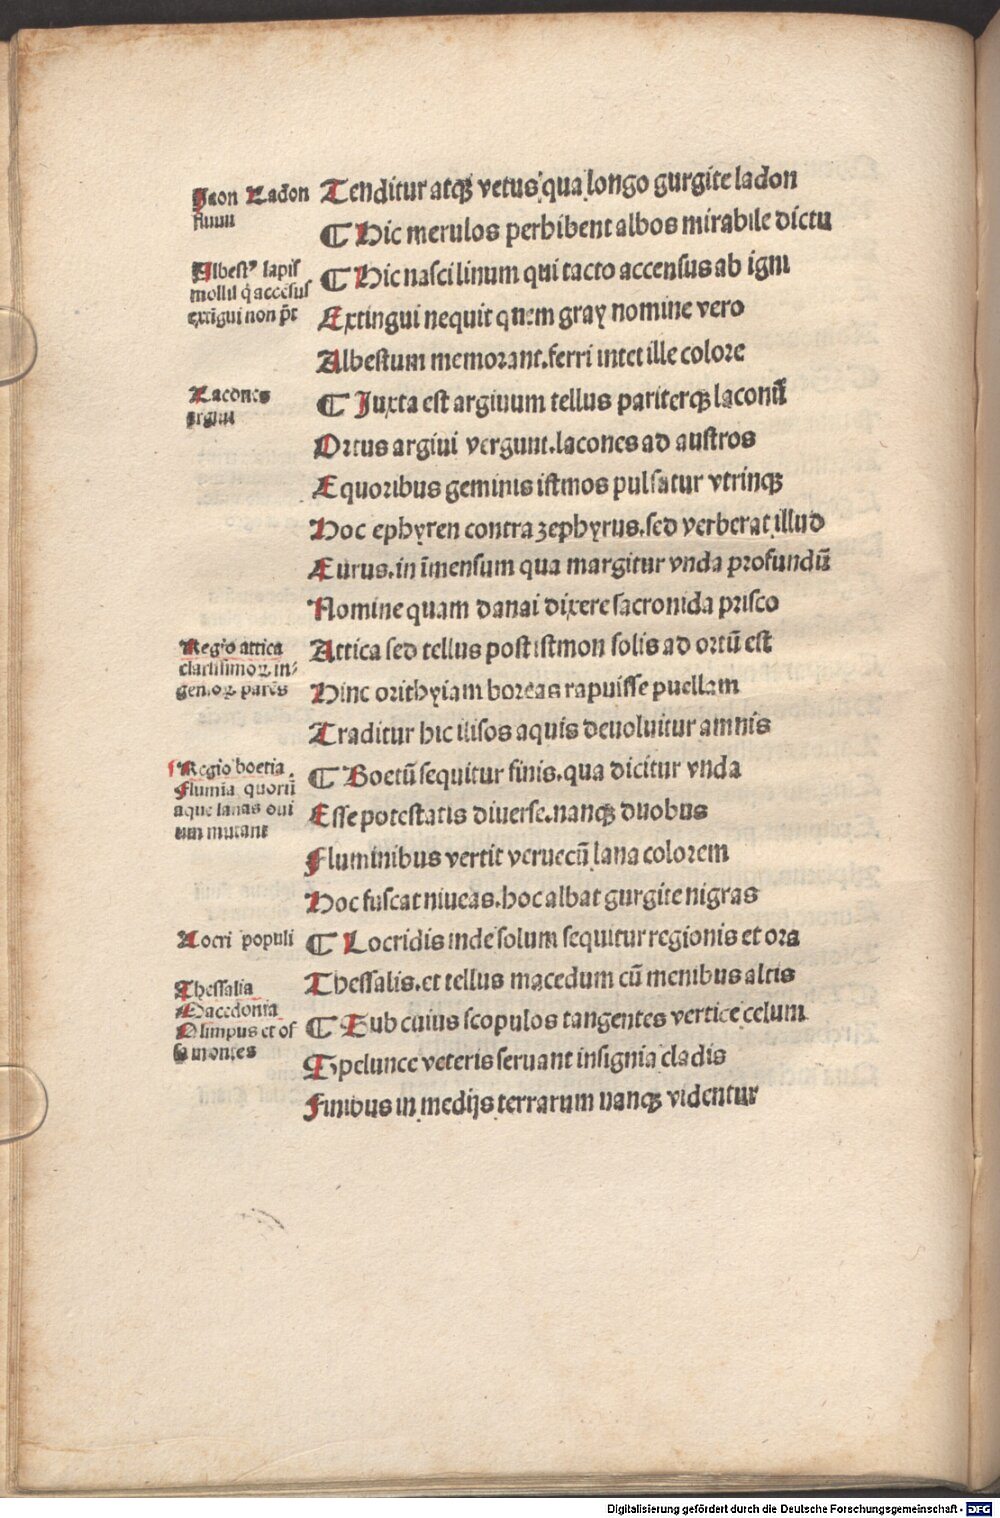 Jaon Ladon
fluuii
Tenditur atqꝫ vetus qua longo gurgite ladon
¶ Hic merulos perhibent albos mirabile dictu
Albestꝰ lapis
mollis q̄ accēsus
extīgui non pōt
¶ Hic nasci linum qui tacto accensus ab igni
Extingui nequit quem gray nomine vero
Albestum memorant. ferri intet ille colore
Lacones
argiui
¶ Juxta est argiuum tellus pariterqꝫ laconū
Ortus argiui vergunt. lacones ad austros
Equoribus geminis istmos pulsatur vtrinqꝫ
Hoc ephyren contra zephyrus. sed verberat illud
Eurus. in īmensum qua margitur vnda profundū
Nomine quam danai dixere sacronida prisco
Regio attica
clarissimoꝝ in⸗
genioꝝ parēs
Attica sed tellus post istmon solis ad ortū est
Hinc orithyiam boreas rapuisse puellam
Traditur hic ilisos aquis deuoluitur amnis
Regio boetia
Flumia quorū
aque lanas oui
um mutant
¶ Boetū sequitur finis. qua dicitur vnda
Esse potestatis diuerse. nanqꝫ duobus
Fluminibus vertit veruecū lana colorem
Hoc fuscat niueas. hoc albat gurgite nigras
Locri populi
¶ Locridis inde solum sequitur regionis et ora
Thessalia
Macedonia
Olimpus et os
sa montes
Thessalis. et tellus macedum cū menibus altis
¶ Sub cuius scopulos tangentes vertice celum
Spelunce veteris seruant insignia cladis
Finibus in medijs terrarum nanqꝫ videntur
Digitalisierung gefördert durch die Deutsche Forschungsgemeinschaft - DFG